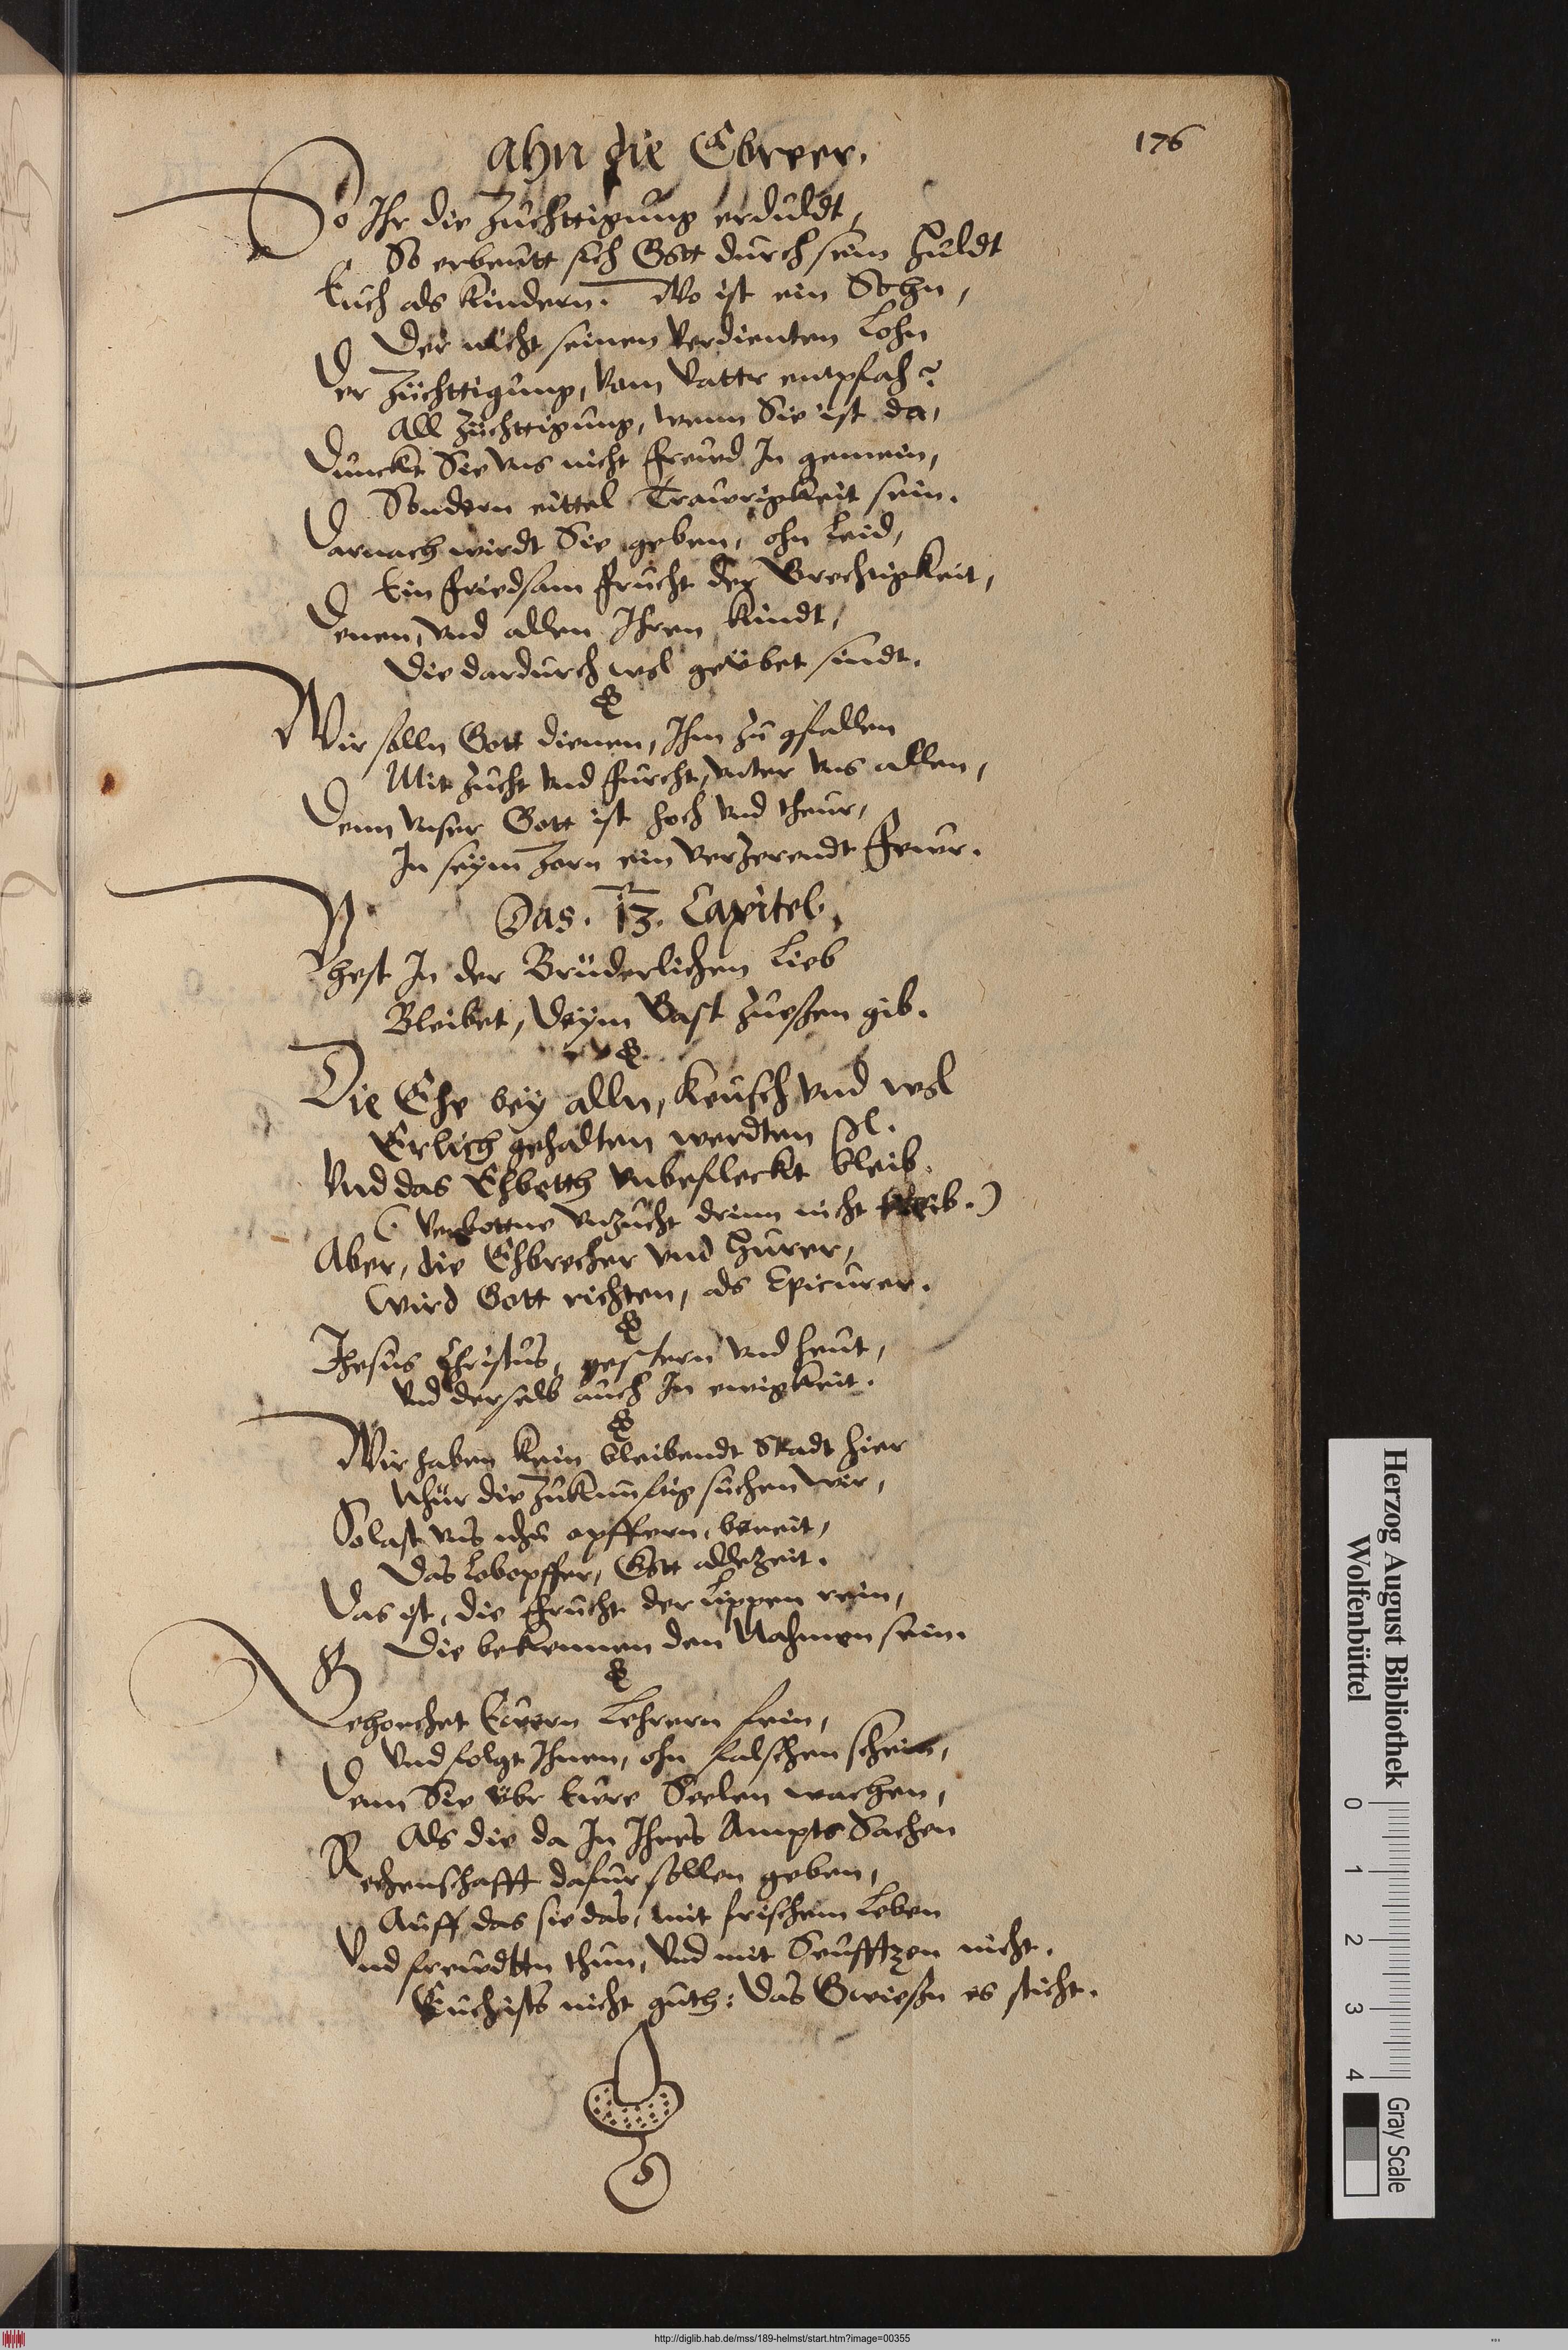 ahn die Ebreer.
176
So Ihr die Züchttigung erduldt,
So erbeutt sich Gott durch sein Huldt
Euch als Kindern. Wo ist ein Sohn,
Der nicht seinen verdienten Lohn
Der Züchttigung, vom Vattr entpfah?
All Züchttigung, wenn Sie ist da,
Dünckt Sie vns nicht frewd In gemein,
Sondern eittel Trawrigkeit sein.
Darnach wirdt Sie geben, ohn Leid,
Ein friedsam frücht der Grechtigkeit,
Denen, vnd allen Ihren Kindt,
Die dardurch wol geübet sindt.
Wir solln Gott dienen, Ihm zu gfallen
Mit Zucht vnd furcht, vnter vns allen,
Denn vnser Gott ist hoch vnd theur,
In seÿm Zorn ein verzerendt fewr.
Das. 13. Capitel.
Vhest In der Brüderlichen Lieb
Bleibet, Deÿm Gast zueßen gib.
Die Ehe beÿ alln, Keusch vnd wol
Erlich gehalten werdten sol.
Vnd das Ehbetth vnbefleckt bleib.
(Verbottne vnzucht drinn nicht treib.)
Aber, die Ehbrecher vnd Hurer,
Wird Gott richten, als Epicurer.
Jhesus Christus, gestern vnd heut,
Vnd derselb auch In ewigkeit.
Wir haben kein bleibendt Stadt hier
Nhur die Zukünfftig suchen wir,
So last vns opffern, bereit,
Das Lobopffer, Gott allezeit.
Das ist, die frücht der Lippen rein,
Die bekennen den Nahmen sein.
Gehorchet Ewern Lehrern fein,
Vnd folgt Ihnen, ohn falschen schein,
Denn Sie übr Eure Seelen wachen,
Als die da In Ihres Ampts Sachen
Rechenschafft dafür sollen geben,
Auff das sie das, mit frischem Leben
Vnd frewdten thun, Vnd mit Seufftzen nicht.
Euch ists nicht guth: Das Gwießn es sticht.
Herzog August Bibliothek
Wolfenbüttel
0 1 2 3 4
Gray Scale
http://diglib.hab.de/mss/189-helmst/start.htm?image=00355